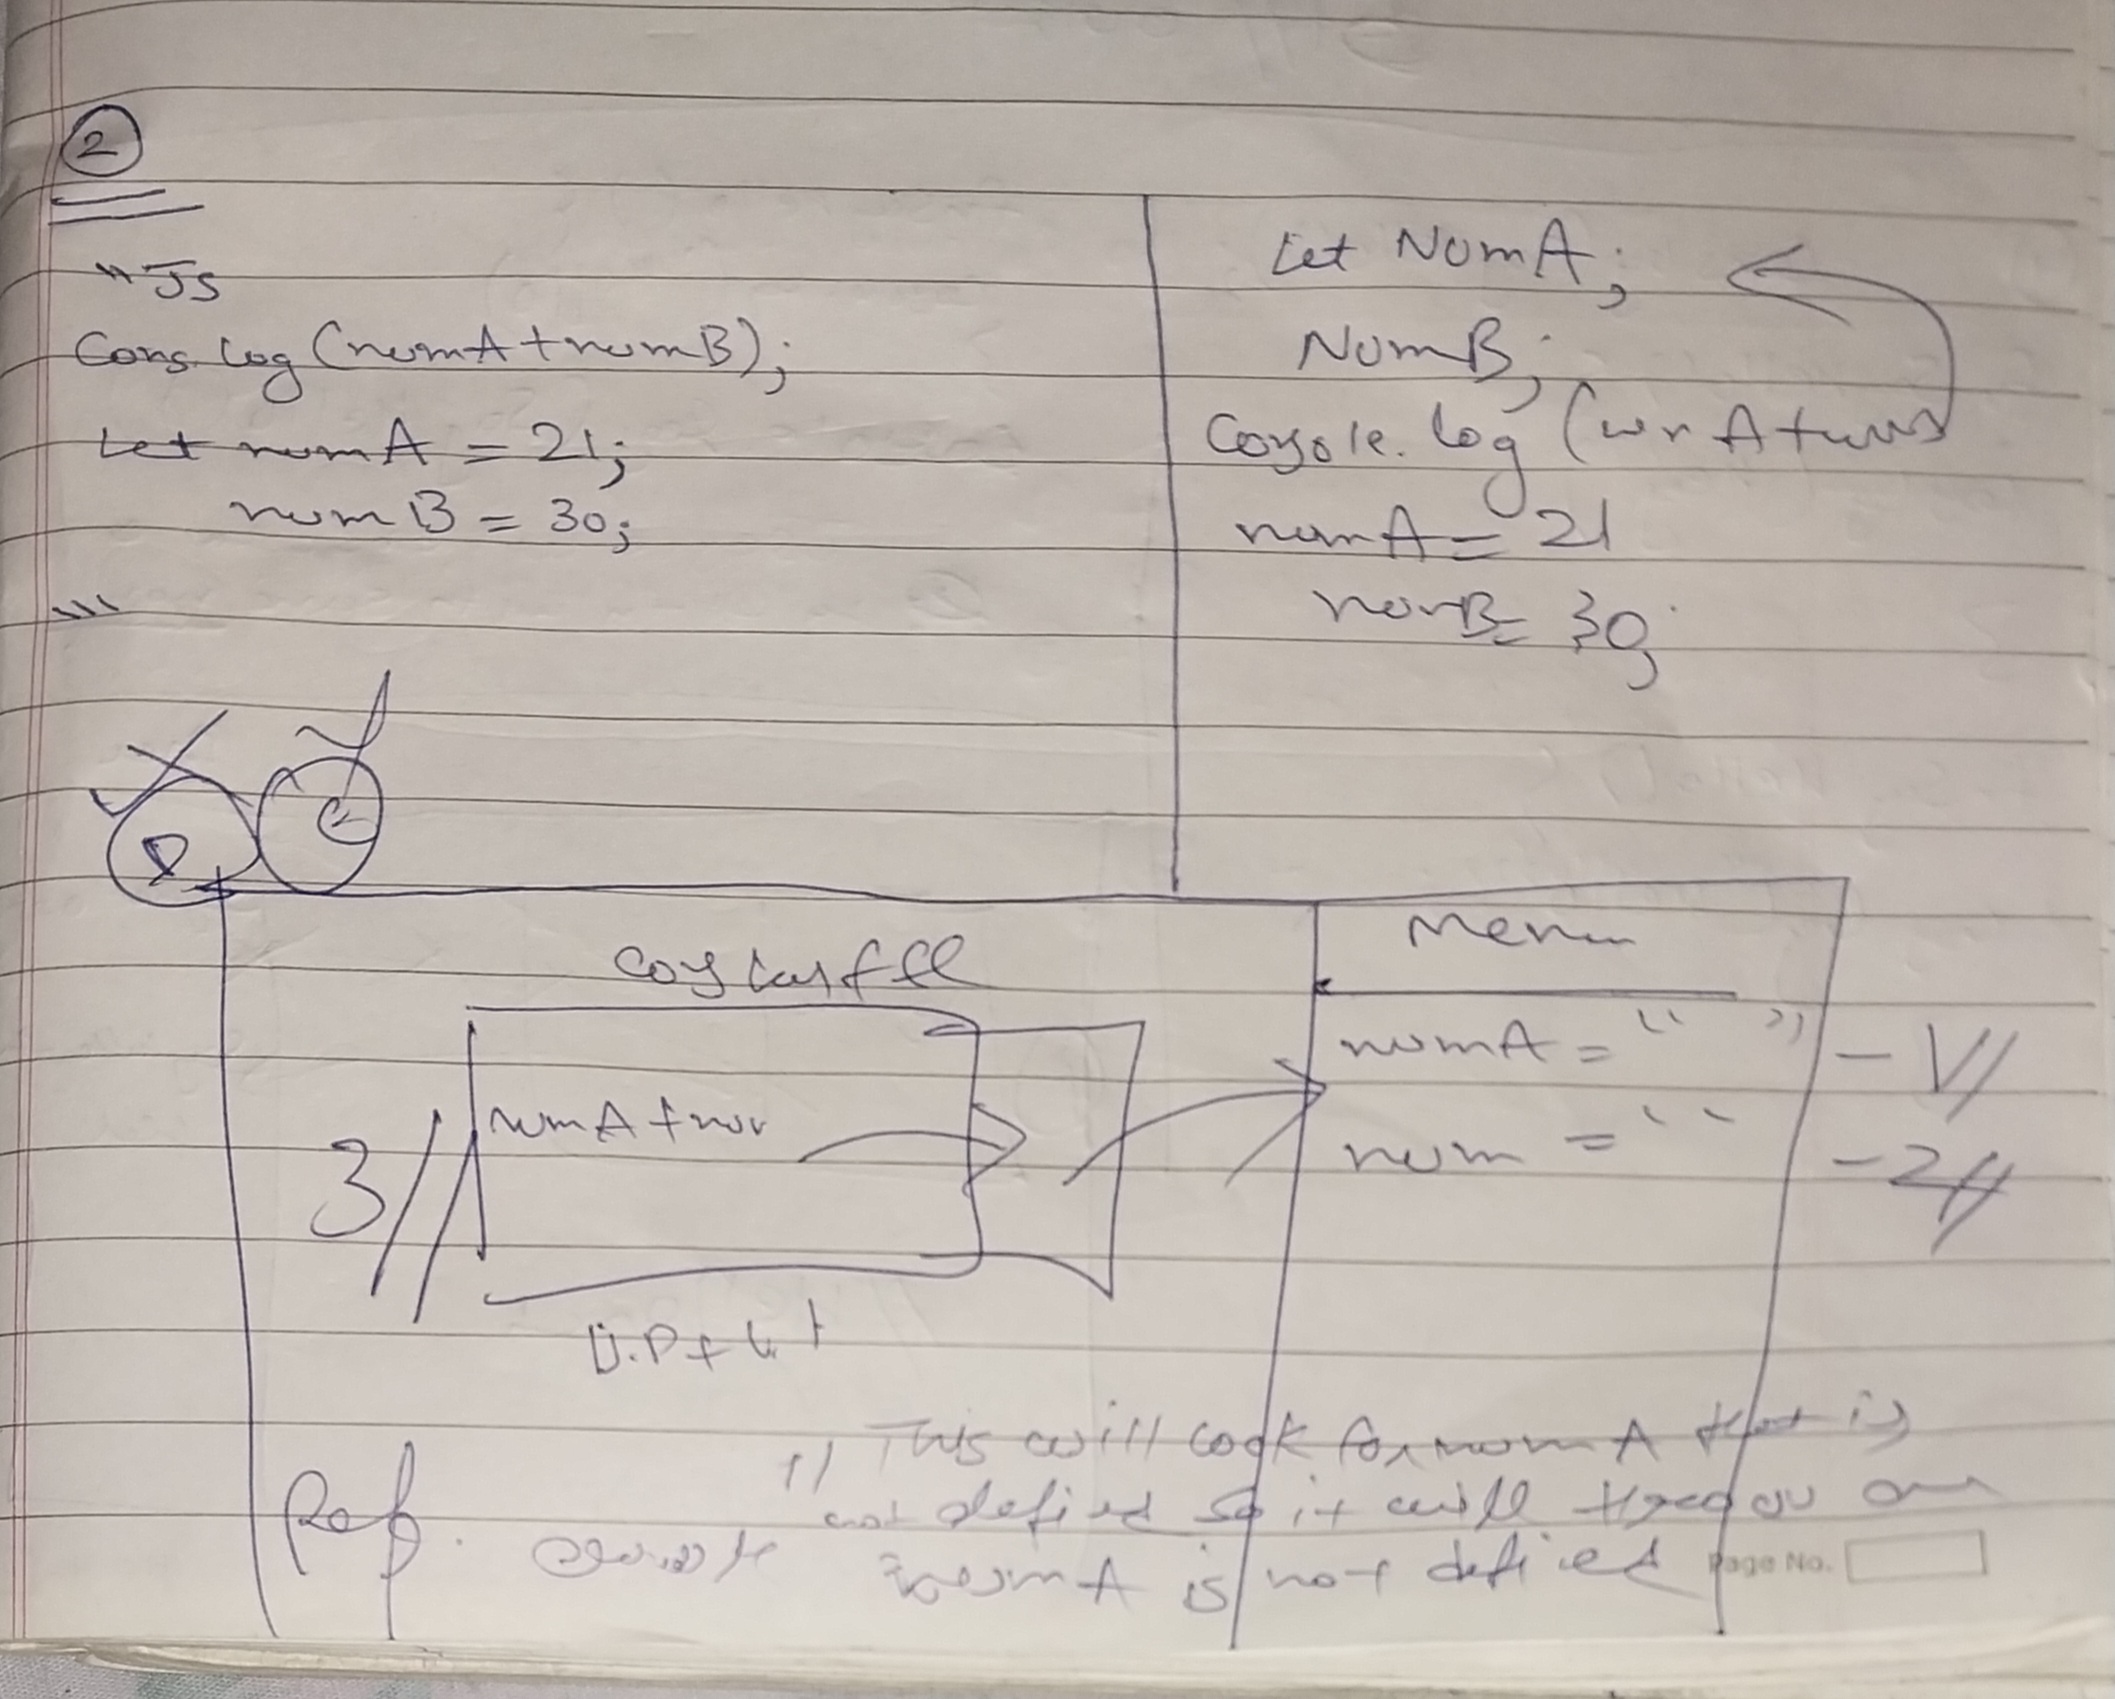 2
"JS
Cons.log(numA+numB);
Let numA = 21;
numB = 30;
\\\
Let NumA;
NumB;
Console.log (
numA = 21
numB= 30;
D
C
numA = " "
num = " "
- 1//
- 2//
numA +
3//
Ref.
// This will look for numA that is
not defined so it will throw an
numA is not defied
Page No.